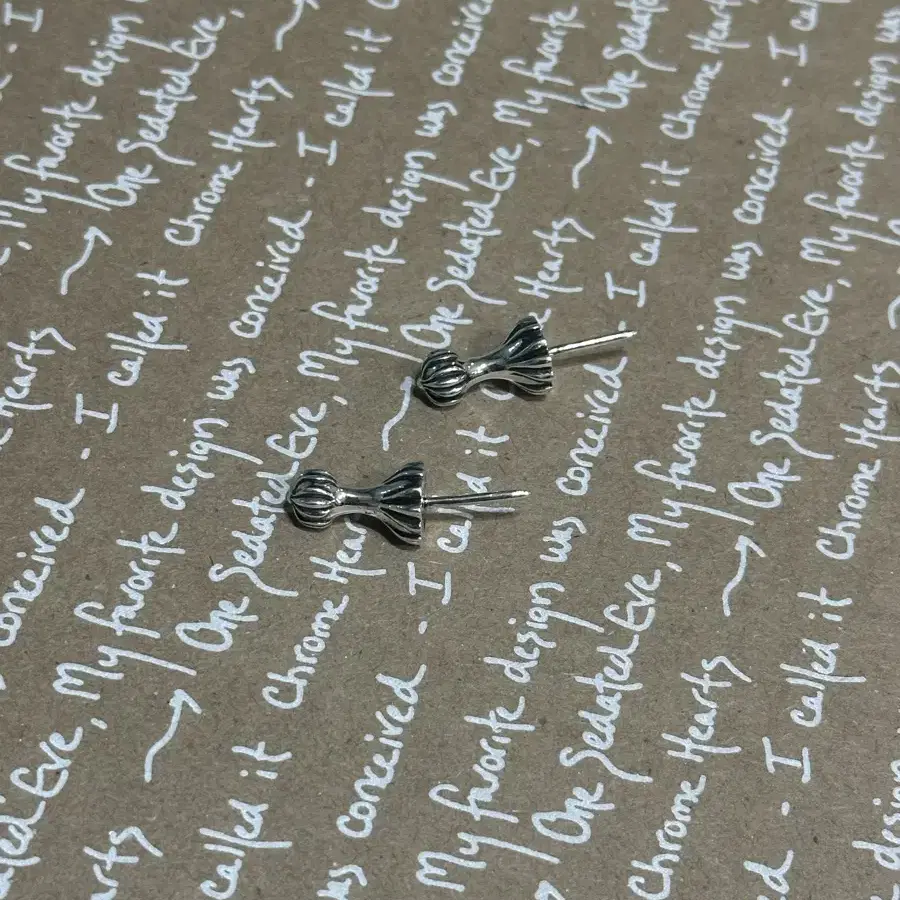 - I
My favorite design
Hearts → One Sedated Eve,
conceived - I called it Chrome Hearts →
Eve, My favorite design was conceived - I called it
→ One Sedated Eve, My favorite design was conceived
called it Chrome → One Sedated Eve, My favorite
was conceived - I it Hearts → One Sedated
My favorite design was conceived - I called it Chrome Hearts
One Sedated Eve, My favorite design was conceived - I called
Chrome Hearts → One Sedated Eve, My favorite design was
- I called it Chrome Hearts
design